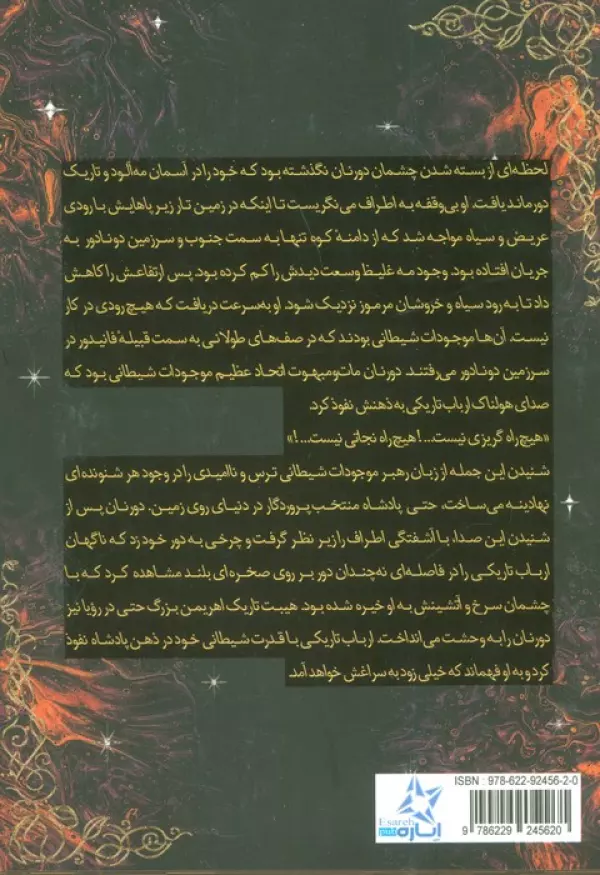 لحظه‌ای از بسته شدن چشمان دورنان نگذشته بود که خود را در آسمان مه‌آلود و تاریک
دورماند یافت. او بی‌وقفه به اطراف می‌نگریست تا اینکه در زمین تار زیر پاهایش با رودی
عریض و سیاه مواجه شد که از دامنهٔ کوه تنها به سمت جنوب و سرزمین دونادور به
جریان افتاده بود. وجود مه غلیظ وسعت دیدش را کم کرده بود. پس ارتفاعش را کاهش
داد تا به رود سیاه و خروشان مرموز نزدیک شود. او به‌سرعت دریافت که هیچ رودی در کار
نیست. آن‌ها موجودات شیطانی بودند که در صف‌های طولانی به سمت قبیلهٔ فانیدور در
سرزمین دونادور می‌رفتند. دورنان مات و مبهوت اتحاد عظیم موجودات شیطانی بود که
صدای هولناک ارباب تاریکی به ذهنش نفوذ کرد.
«هیچ راه گریزی نیست...! هیچ راه نجاتی نیست...!»
شنیدن این جمله از زبان رهبر موجودات شیطانی ترس و ناامیدی را در وجود هر شنونده‌ای
نهادینه می‌ساخت، حتی پادشاه منتخب پروردگار در دنیای روی زمین. دورنان پس از
شنیدن این صدا، با آشفتگی اطراف را زیر نظر گرفت و چرخی به دور خود زد که ناگهان
ارباب تاریکی را در فاصله‌ای نه‌چندان دور بر روی صخره‌ای بلند مشاهده کرد که با
چشمان سرخ و آتشینش به او خیره شده بود. هیبت تاریک اهریمن بزرگ حتی در رؤیا نیز
دورنان را به وحشت می‌انداخت. ارباب تاریکی با قدرت شیطانی خود در ذهن پادشاه نفوذ
کرد و به او فهماند که خیلی زود به سراغش خواهد آمد.
ISBN : 978-622-92456-2-0
Esareh
9 786229 245620